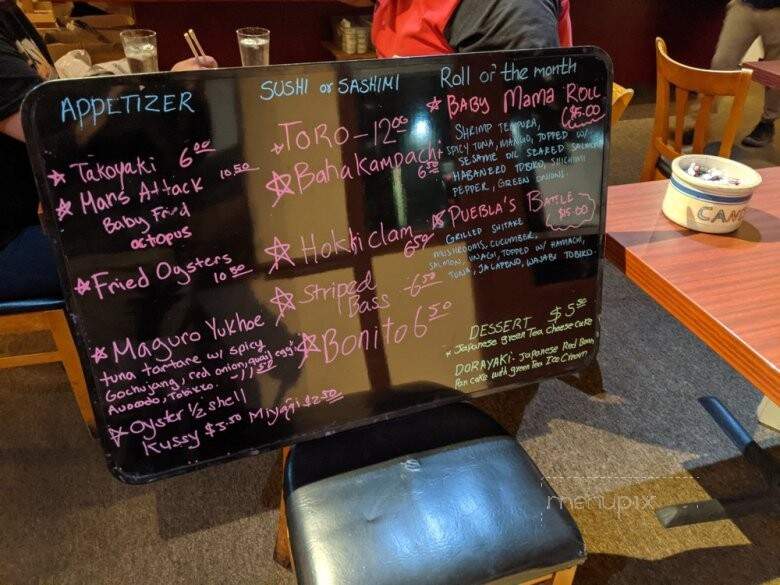 APPETIZER
★ Takoyaki 6.00
★ Mars Attack 10.50
Baby Fried
octopus
★ Fried Oysters
10.50
★ Maguro Yukhoe
tuna tartare w/ spicy
Gochujang, red onion, quail egg
Avocado, Tobikko. 11.50
★ Oyster 1/2 shell
Kussy $3.50 Miyagi $2.50
SUSHI or SASHIMI
★ TORO - 12.00
★ Bahakampachi
6.50
★ Hokki clam
6.50
★ Striped
Bass 6.50
★ Bonito 6.50
Roll of the month
★ BABY MAMA ROLL
$15.00
SHRIMP TEMPURA,
SPICY TUNA, MANGO, TOPPED W/
SESAME OIL SEARED SALMON
HABANERO TOBIKO, SHICHIMI
PEPPER, GREEN ONIONS.
★ PUEBLA'S BATTLE
$15.00
GRILLED SHITAKE
MUSHROOMS, CUCUMBER,
SALMON, UNAGI, TOPPED W/ HAMACHI,
TUNA, JALAPENO, WASABI TOBIKO.
DESSERT $5.50
* Japanese green Tea cheese cake
DORAYAKI - Japanese Red Bean
Pancake with green Tea Ice Cream
CAN
menupix